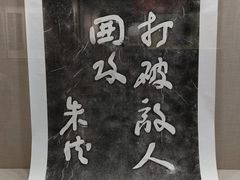 打破敌人
围攻
朱德